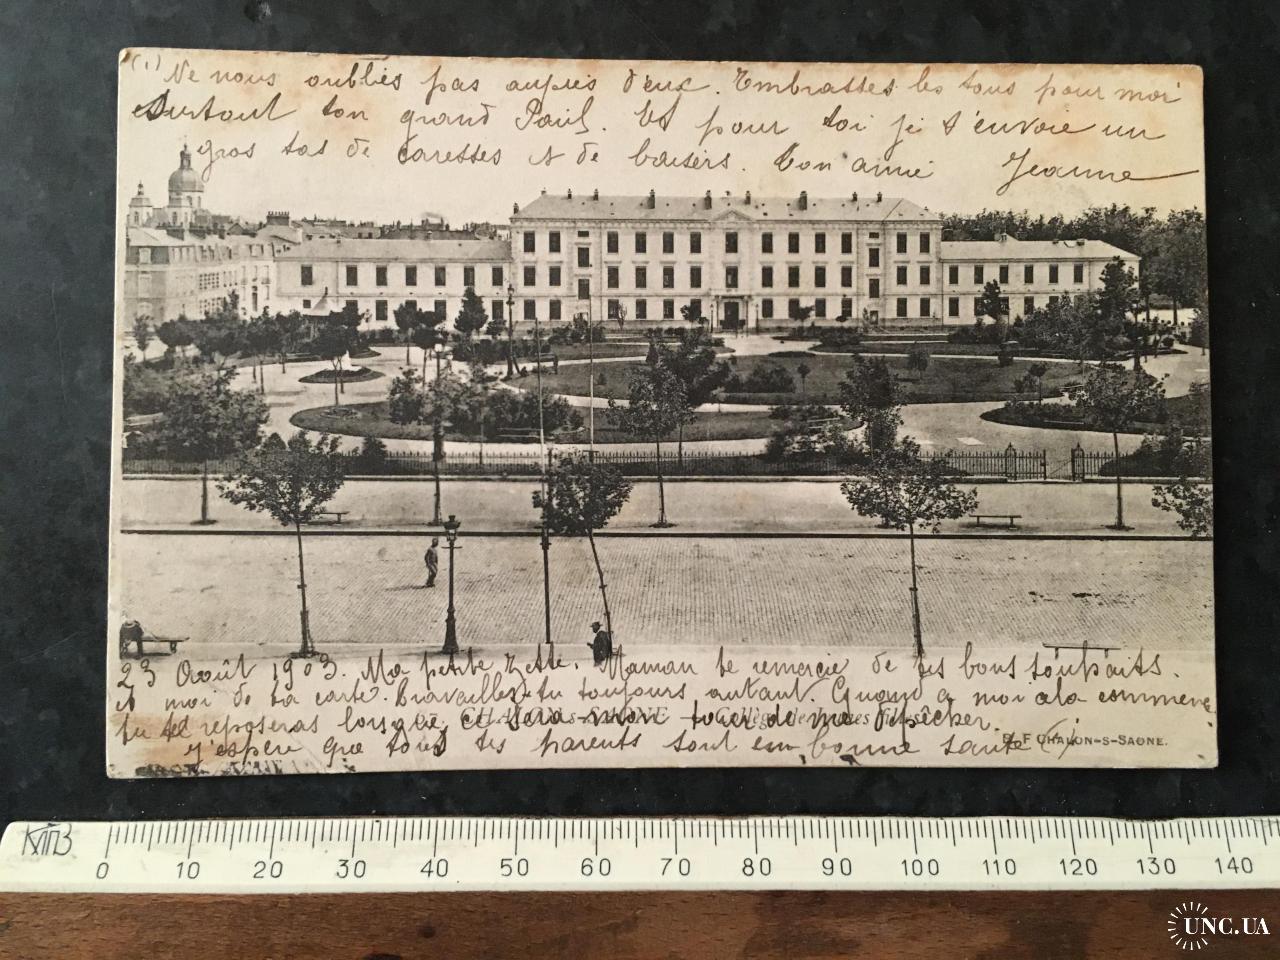 (1) Ne nous oublies pas auprès d'eux. Embrasses les tous pour moi
surtout ton grand Paul. Et pour toi je t'envoie un
gros tas de caresses et de baisers. Ton amie Jeanne
23 Août 1903. Ma petite Zette. Maman te remercie de tes bons souhaits.
et moi de ta carte. Travailles-tu toujours autant Quand à moi ça commence
tu te reposeras lorsque ce sera mon tour de me dépêcher.
CHALON-s-SAONE - Collège de Jeunes filles
J'espère que tous tes parents sont en bonne santé (1)
B. F. CHALON-S-SAONE.
КПВ
0 10 20 30 40 50 60 70 80 90 100 110 120 130 140
UNC.UA